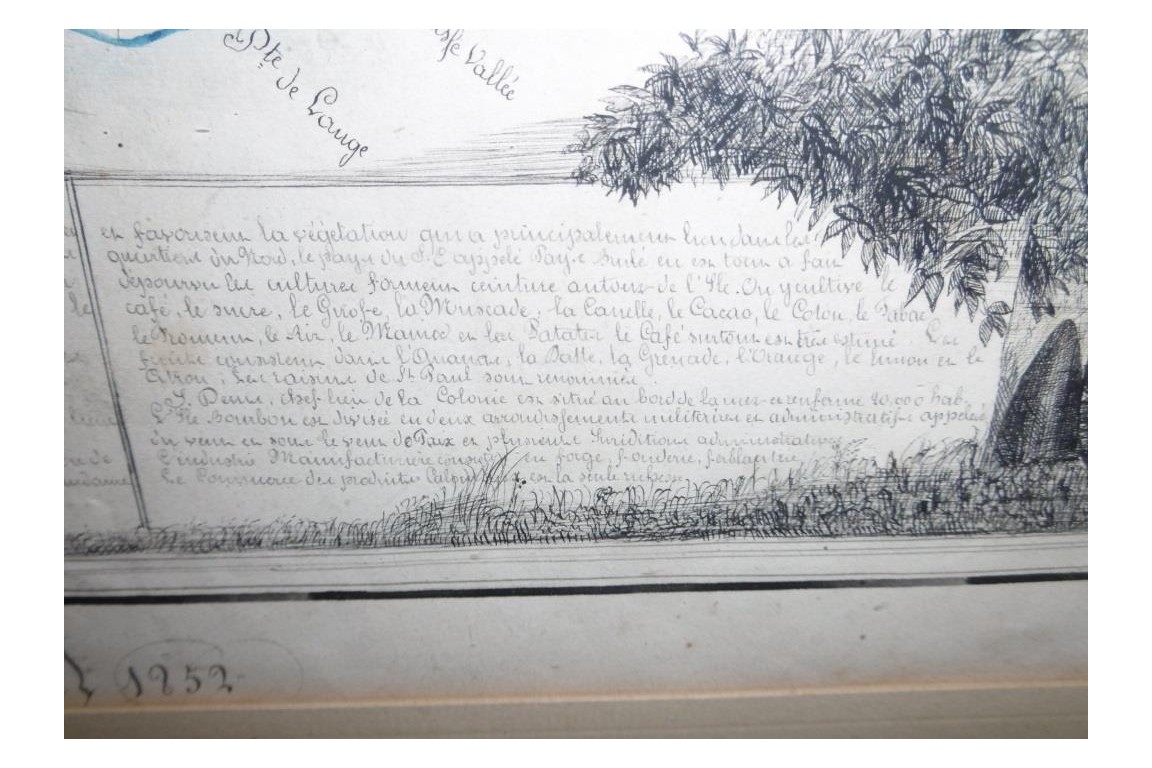 Pte de Lange
sse Vallée
et favorisent la végétation qui a principalement lieu dans les
quartiers du Nord, le pays du S.E appelé Pays Brulé en est tout a fait
dépourvu les cultures forment ceinture autour de l'Ile. On y cultive le
café, le sucre, le Girofe, la Muscade, la Canelle, le Cacao, le Coton, le Tabac
le Froment, le Riz, le Manioc et les Patates le Café surtout est très estimé. Les
fruits consistent dans l'Ananas, la Datte, la Grenade, l'Orange, le limon et le
Citron; Les raisins de St Paul sont renommés.
St Denis, chef lieu de la Colonie est situé au bord de la mer et renferme 20.000 hab.
L'Ile Bourbon est divisée en deux arrondissements militaires et administratifs appelés
du vent et sous le vent de Paix et plusieurs Juriditions administratives
L'industrie Manufacturière consiste en forge, fonderie, ferblanterie
Le Commerce des produits est la seule richesse
le
de
1852